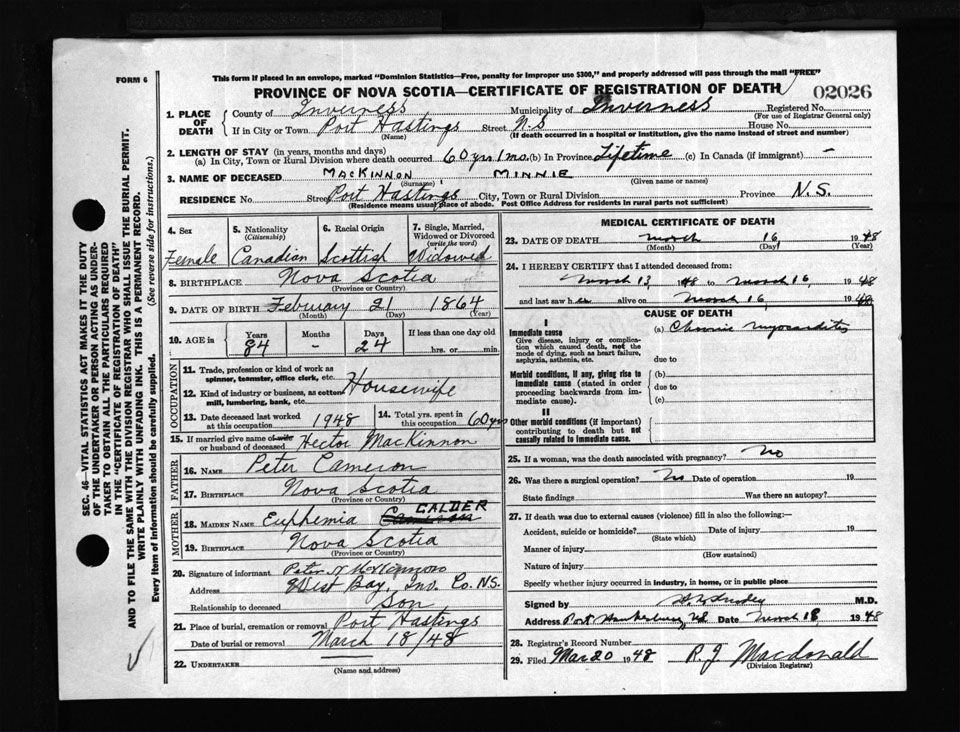 This form if placed in an envelope, marked "Dominion Statistics—Free, penalty for improper use $300," and properly addressed will pass through the mail "FREE"
FORM 6
PROVINCE OF NOVA SCOTIA—CERTIFICATE OF REGISTRATION OF DEATH
02026
1. PLACE OF DEATH
County of Inverness Municipality of Inverness Registered No.
(For use of Registrar General only)
If in City or Town Port Hastings Street N.S House No.
(Name) (If death occurred in a hospital or institution, give the name instead of street and number)
2. LENGTH OF STAY (in years, months and days)
(a) In City, Town or Rural Division where death occurred 60 yrs 1 mo. (b) In Province Lifetime (c) In Canada (if immigrant) -
3. NAME OF DECEASED MACKINNON MINNIE
(Surname) (Given name or names)
RESIDENCE No. Street Port Hastings City, Town or Rural Division Province N.S.
(Residence means usual place of abode. Post Office Address for residents in rural parts not sufficient)
4. Sex 5. Nationality (Citizenship) 6. Racial Origin 7. Single, Married, Widowed or Divorced (write the word)
Female Canadian Scottish Widowed
8. BIRTHPLACE Nova Scotia
(Province or Country)
9. DATE OF BIRTH February 21 1864
(Month) (Day) (Year)
10. AGE in Years Months Days If less than one day old
84 - 24 hrs. or min.
OCCUPATION
11. Trade, profession or kind of work as spinner, teamster, office clerk, etc.
Housewife
12. Kind of industry or business, as cotton mill, lumbering, bank, etc.
13. Date deceased last worked at this occupation 1948
14. Total yrs. spent in this occupation 60 yrs
15. If married give name of wife or husband of deceased Hector MacKinnon
FATHER
16. NAME Peter Cameron
17. BIRTHPLACE Nova Scotia
(Province or Country)
MOTHER
CALDER
18. MAIDEN NAME Euphemia Cameron
19. BIRTHPLACE Nova Scotia
(Province or Country)
20. Signature of informant Peter
Address West Bay, Inv. Co. N.S.
Relationship to deceased Son
21. Place of burial, cremation or removal Port Hastings
Date of burial or removal March 18/48
22. UNDERTAKER
(Name and address)
MEDICAL CERTIFICATE OF DEATH
23. DATE OF DEATH March 16 1948
(Month) (Day) (Year)
24. I HEREBY CERTIFY that I attended deceased from:
March 13, 1948 to March 16, 1948
and last saw her alive on March 16, 1948
CAUSE OF DEATH
I
Immediate cause (a) Chronic myocarditis
Give disease, injury or complication which caused death, not the mode of dying, such as heart failure, asphyxia, asthenia, etc.
due to
Morbid conditions, if any, giving rise to immediate cause (stated in order proceeding backwards from immediate cause).
(b)
due to
(c)
II
Other morbid conditions (if important) contributing to death but not causally related to immediate cause.
25. If a woman, was the death associated with pregnancy? No
26. Was there a surgical operation? No Date of operation 19
State findings Was there an autopsy?
27. If death was due to external causes (violence) fill in also the following:—
Accident, suicide or homicide? Date of injury 19
(State which)
Manner of injury
(How sustained)
Nature of injury
Specify whether injury occurred in industry, in home, or in public place
Signed by M.D.
Address Port Hawkesbury NS Date March 18 1948
28. Registrar's Record Number
29. Filed Mar 20 1948 R. J. Macdonald
(Division Registrar)
SEC. 46—VITAL STATISTICS ACT MAKES IT THE DUTY
OF THE UNDERTAKER OR PERSON ACTING AS UNDERTAKER TO OBTAIN ALL THE PARTICULARS REQUIRED
IN THE "CERTIFICATE OF REGISTRATION OF DEATH"
AND TO FILE THE SAME WITH THE DIVISION REGISTRAR WHO SHALL ISSUE THE BURIAL PERMIT.
WRITE PLAINLY WITH UNFADING INK. THIS IS A PERMANENT RECORD.
Every item of information should be carefully supplied. (See reverse side for instructions.)